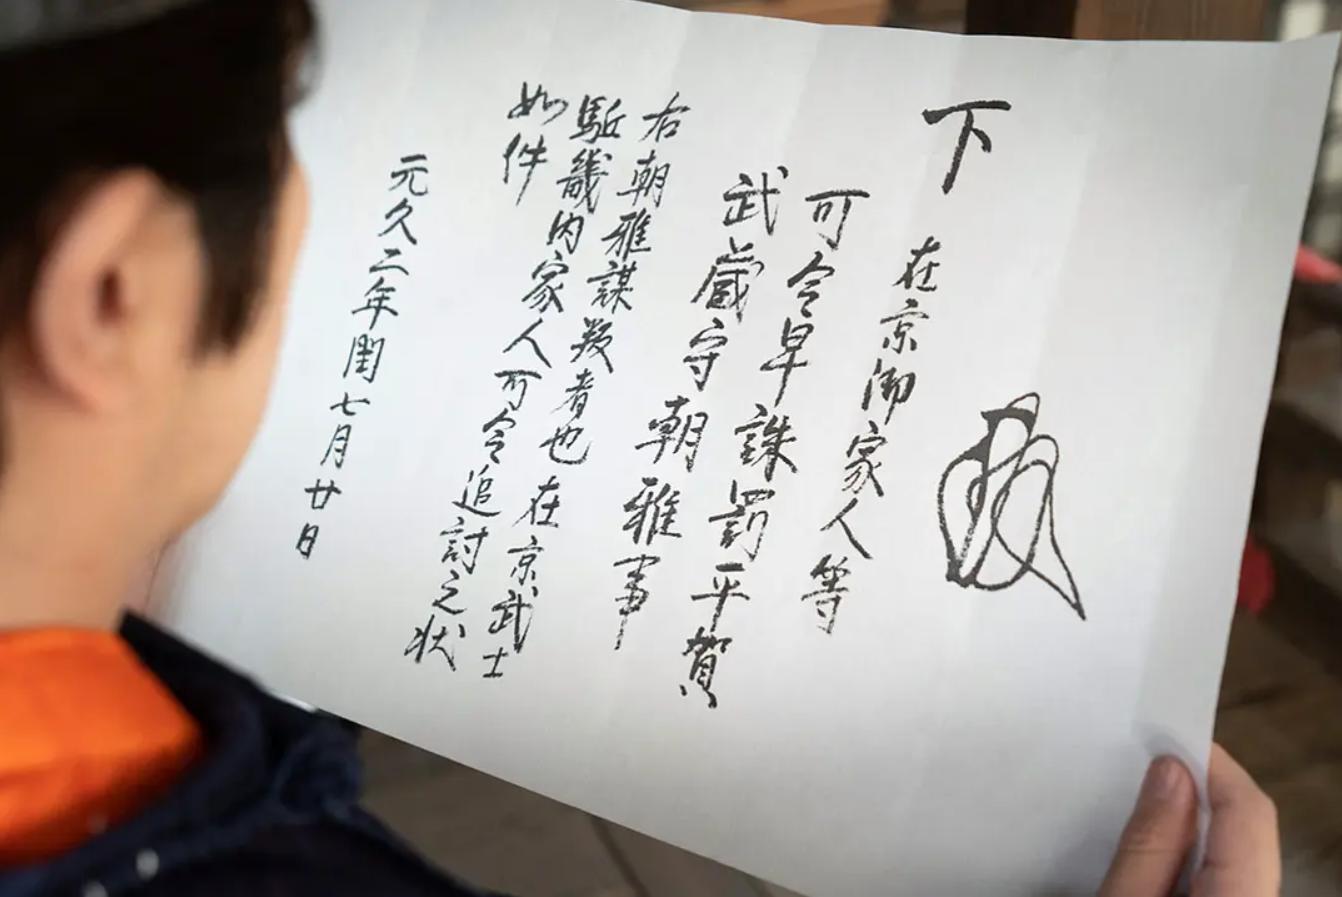 下
在京御家人等
可令早誅罰平賀
武蔵守朝雅事
右朝雅謀叛者也在京武士
駈畿内家人可令追討之状
如件
元久二年閏七月廿日